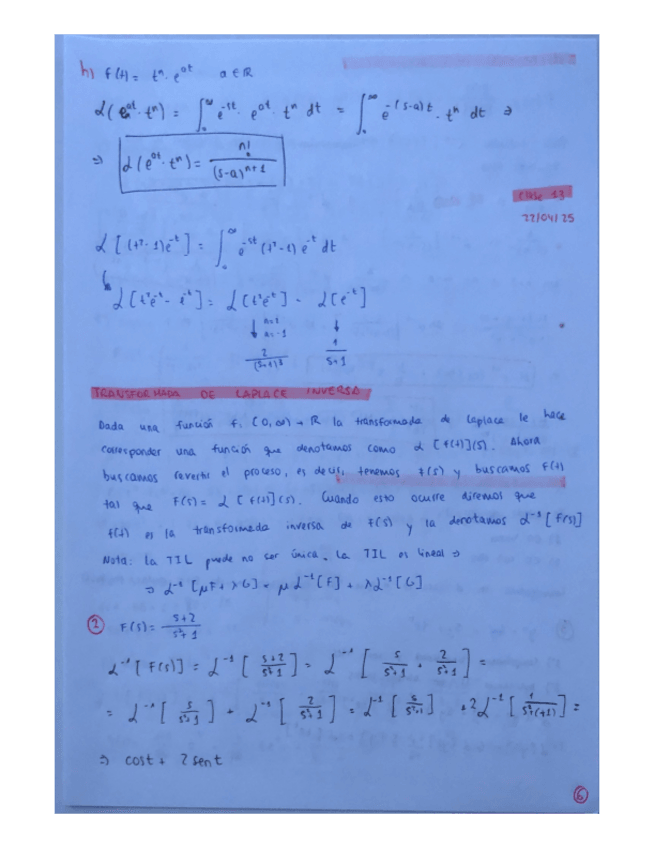 h) f(t) = tⁿ · e^{at}   a ∈ ℝ
ℒ(e^{at} · tⁿ) = ∫₀^∞ e^{-st} · e^{at} · tⁿ dt = ∫₀^∞ e^{-(s-a)t} · tⁿ dt ⇒
⇒ ℒ(e^{at} · tⁿ) = n! / (s-a)^{n+1}
Clase 13
22/04/25
ℒ[(t² - 1)e^{-t}] = ∫₀^∞ e^{-st} (t² - 1) e^{-t} dt
ℒ[t²e^{-t} - e^{-t}] = ℒ[t²e^{-t}] - ℒ[e^{-t}]
a = -1
2 / (s+1)³   1 / (s+1)
TRANSFORMADA DE LAPLACE INVERSA
Dada una función f: (0, ∞) → ℝ la transformada de laplace le hace
corresponder una función que denotamos como ℒ[f(t)](s). Ahora
buscamos revertir el proceso, es decir, tenemos F(s) y buscamos f(t)
tal que F(s) = ℒ[f(t)](s). Cuando esto ocurre diremos que
f(t) es la transformada inversa de F(s) y la denotamos ℒ⁻¹[F(s)]
Nota: la TIL puede no ser única. La TIL es lineal ⇒
⇒ ℒ⁻¹[μF + λG] = μℒ⁻¹[F] + λℒ⁻¹[G]
F(s) = (s+2) / (s²+1)
ℒ⁻¹[F(s)] = ℒ⁻¹[(s+2) / (s²+1)] = ℒ⁻¹[s / (s²+1) + 2 / (s²+1)] =
= ℒ⁻¹[s / (s²+1)] + ℒ⁻¹[2 / (s²+1)] = ℒ⁻¹[s / (s²+1)] + 2ℒ⁻¹[1 / (s²+(+1))] =
⇒ cost + 2 sent
6